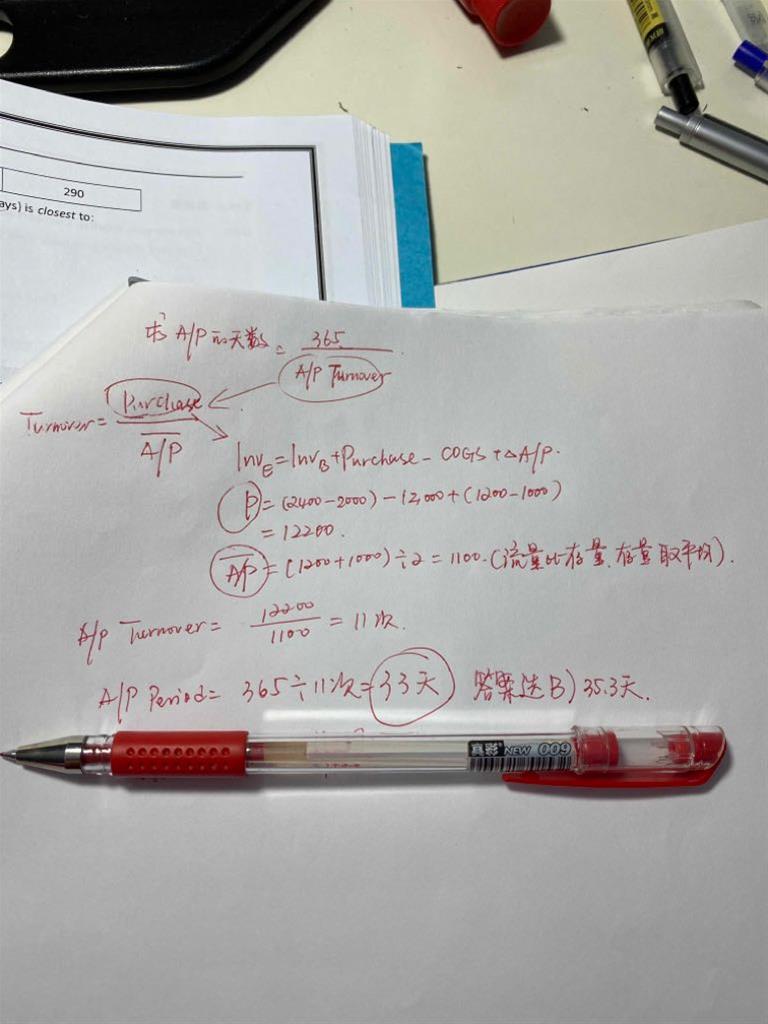 290
ays) is closest to:
求 A/P 的天数 = 365 / A/P Turnover
Turnover = Purchase / A/P
InvE = InvB + Purchase - COGS + △A/P.
P = (2400-2000) - 12,000 + (1200-1000)
= 12200.
A/P = (1200+1000) ÷ 2 = 1100. (流量比存量, 存量取平均).
A/P Turnover = 12200 / 1100 = 11次.
A/P Period = 365 ÷ 11次 = 33天 答案选 B) 35.3天.
真彩 NEW 009